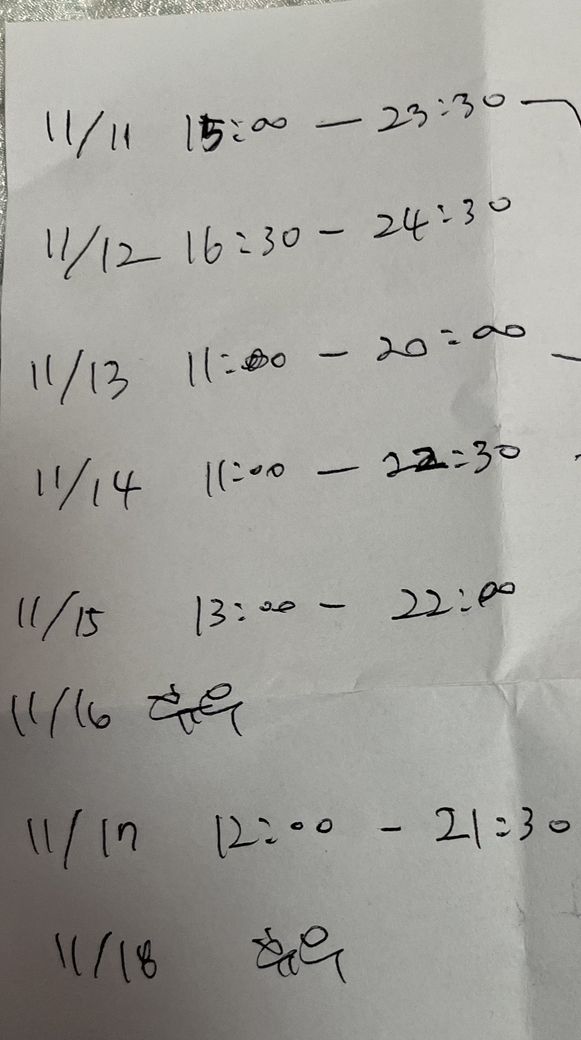 11/11 15:00 - 23:30
11/12 16:30 - 24:30
11/13 11:00 - 20:00
11/14 11:00 - 22:30
11/15 13:00 - 22:00
11/16 휴무
11/17 12:00 - 21:30
11/18 휴무